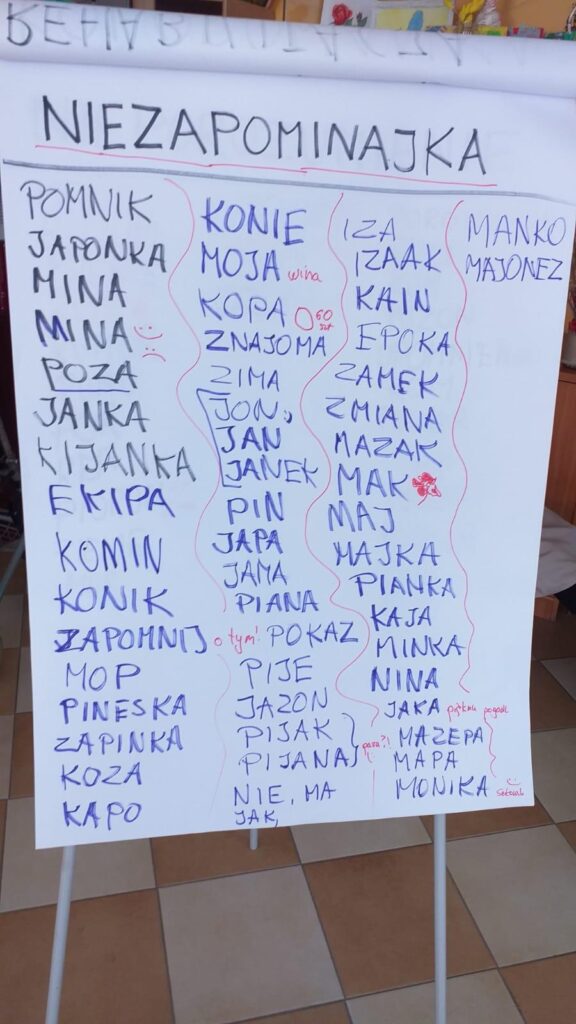 NIEZAPOMINAJKA
POMNIK
JAPONKA
MINA
MINA
POZA
JANKA
KIJANKA
EKIPA
KOMIN
KONIK
ZAPOMNIJ o tym!
MOP
PINESKA
ZAPINKA
KOZA
KAPO
KONIE
MOJA wina
KOPA 60 szt
ZNAJOMA
ZIMA
JON,
JAN
JANEK
PIN
JAPA
JAMA
PIANA
POKAZ
PIJE
JAZON
PIJAK
PIJANA para?!
NIE, MA
JAK,
IZA
IZAAK
KAIN
EPOKA
ZAMEK
ZMIANA
MAZAK
MAK
MAJ
MAJKA
PIANKA
KAJA
MINKA
NINA
JAKA piękna pogoda
MAZEPA
MAPA
MONIKA
MANKO
MAJONEZ